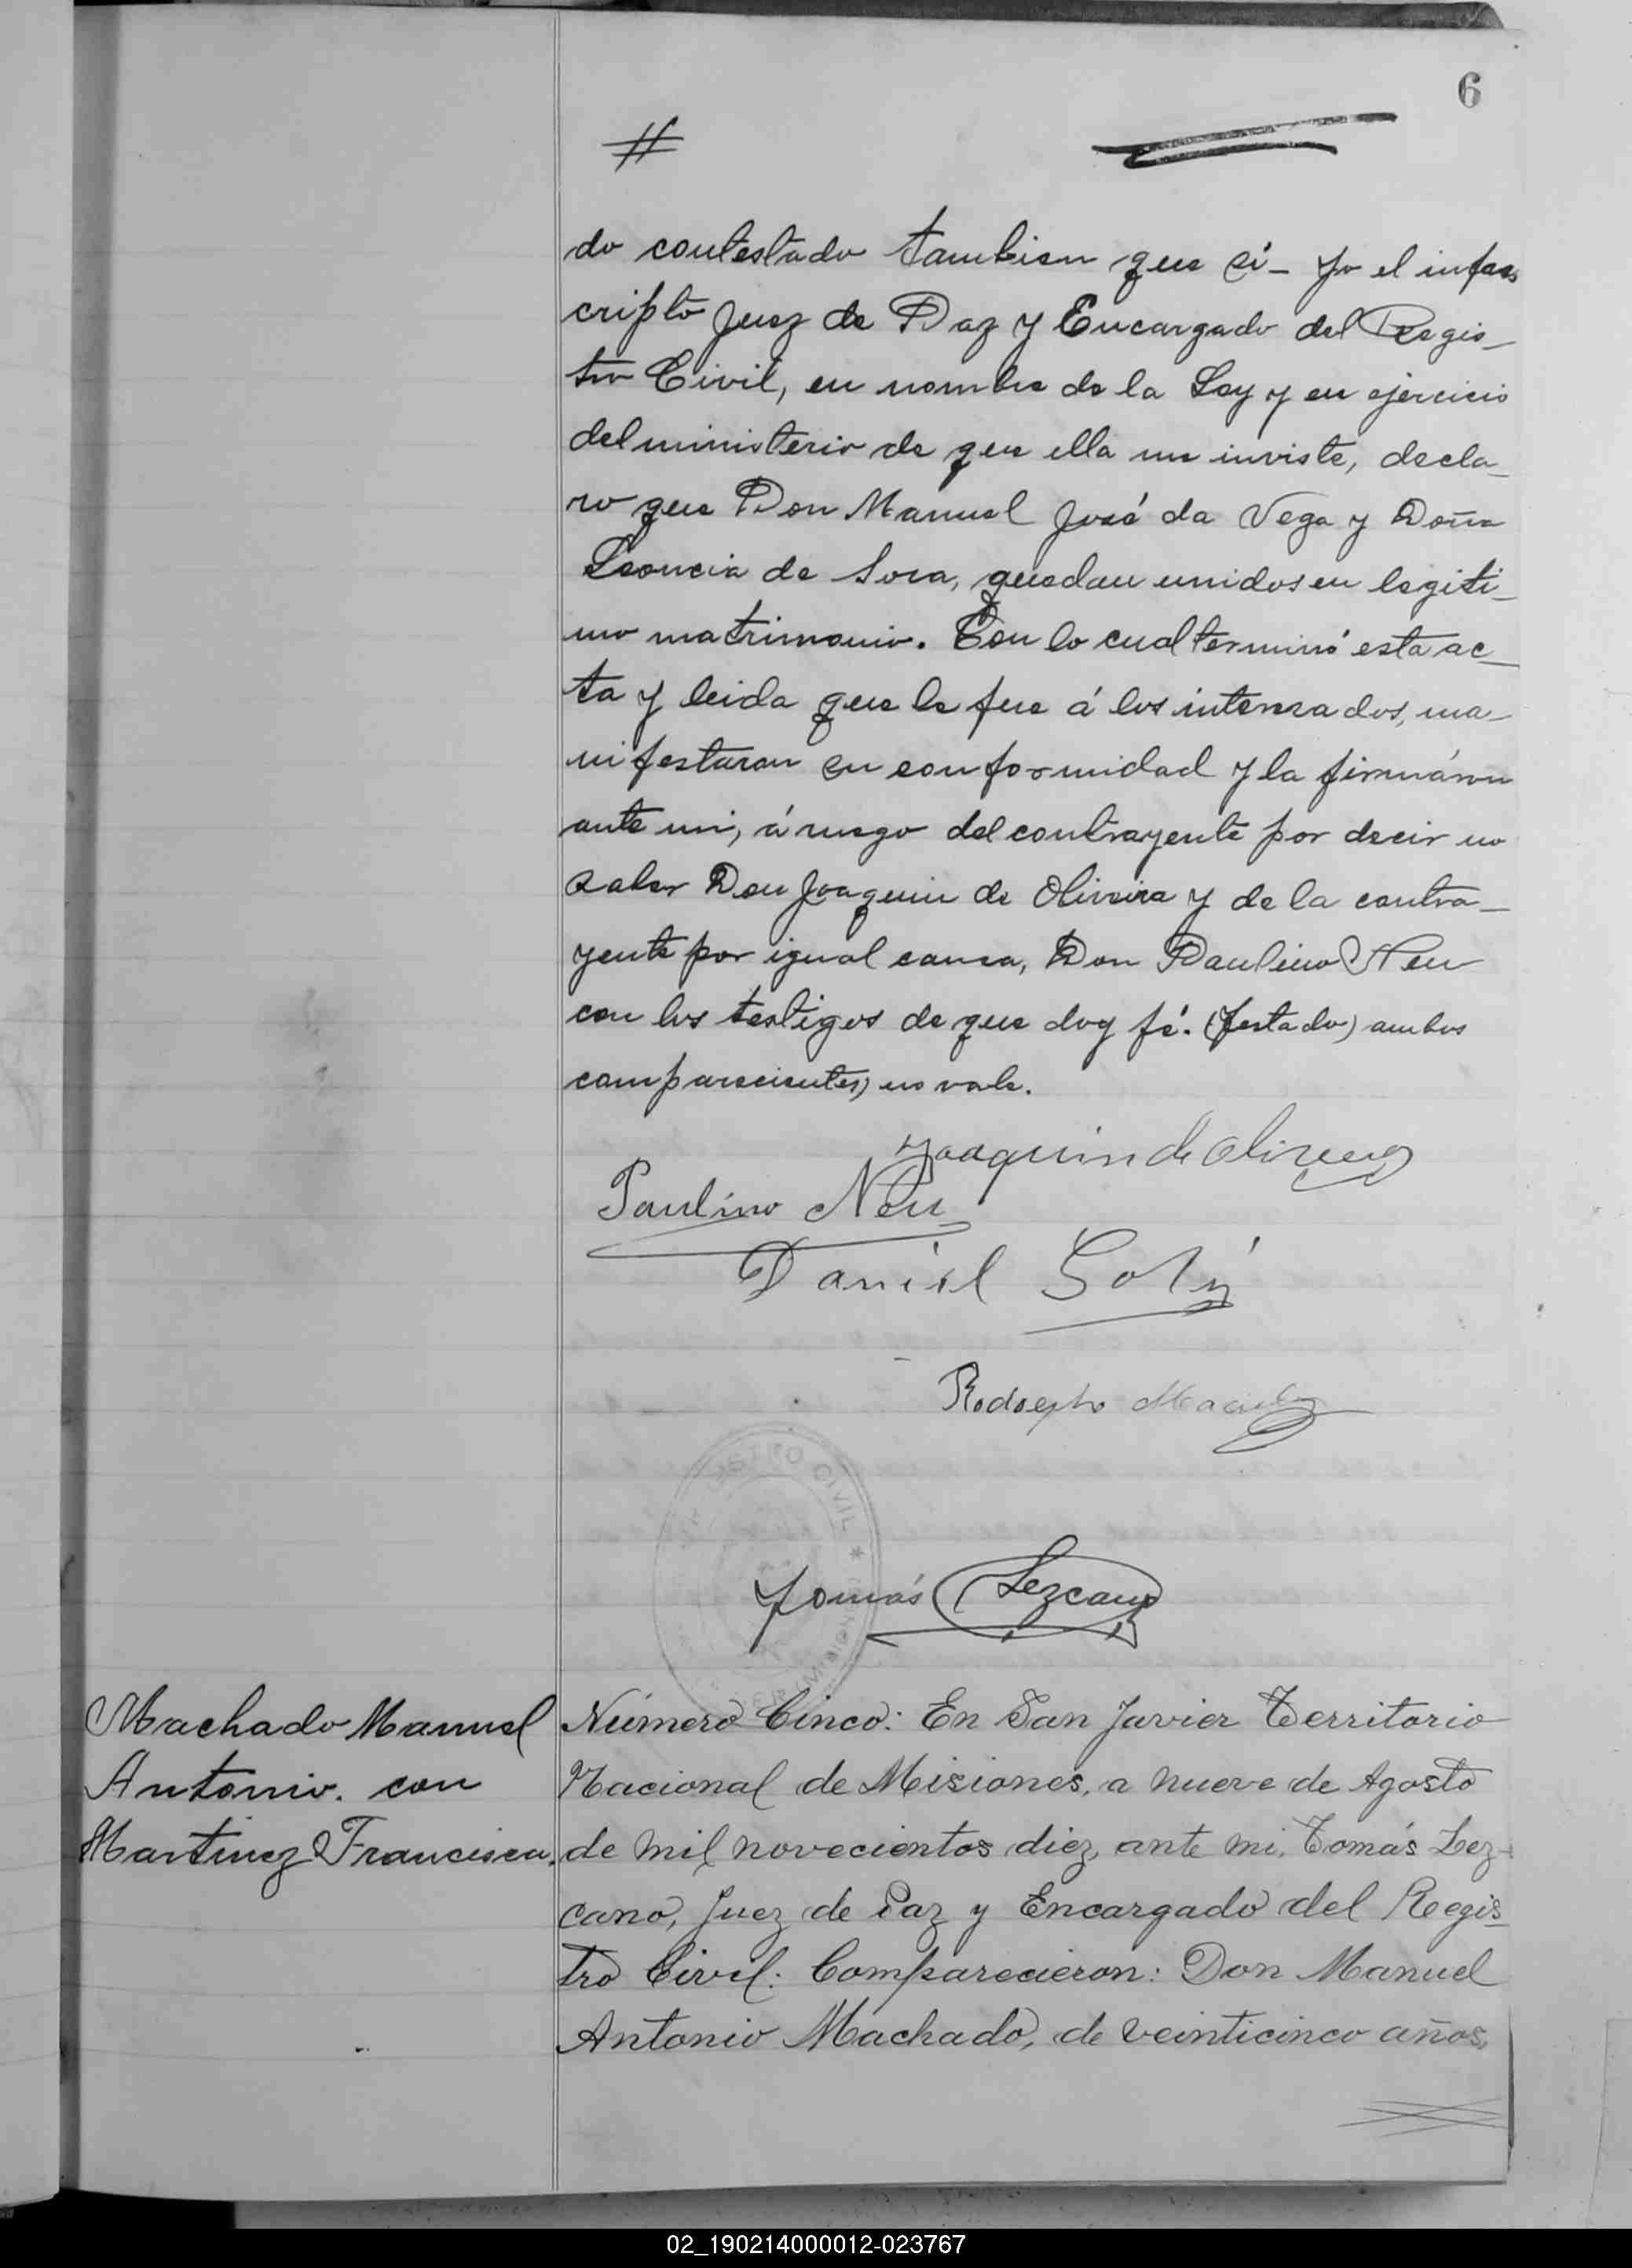 6
do contestado tambien que si- Yo el infras
cripto Juez de Paz y Encargado del Regis-
tro Civil, en nombre de la Ley y en ejercicio
del ministerio de que ella me inviste, decla-
ro que Don Manuel José da Vega y Doña
Leoncia de Sosa, quedan unidos en legiti-
mo matrimonio. Con lo cual terminó esta ac-
ta y leida que le fue á los interesados, ma-
nifestaron su conformidad y la firmáron
ante mi, á ruego del contrayente por decir no
saber Don Joaquin de Oliveira y de la contra-
yente por igual causa, Don Paulino Neu
con los testigos de que doy fé. (Testado) ambos
comparecientes) no vale.
Joaquin de Oliveira
Paulino Neu
Daniel
Rodolpho
REGISTRO CIVIL
Tomás Lezcano
Machado Manuel
Antonio. con
Martinez Francisca.
Número Cinco: En San Javier Territorio
Nacional de Misiones, a nueve de Agosto
de mil novecientos diez, ante mi, Tomás Lez-
cano, Juez de Paz y Encargado del Regis-
tro Civil: Comparecieron: Don Manuel
Antonio Machado, de veinticinco años,
02_190214000012-023767